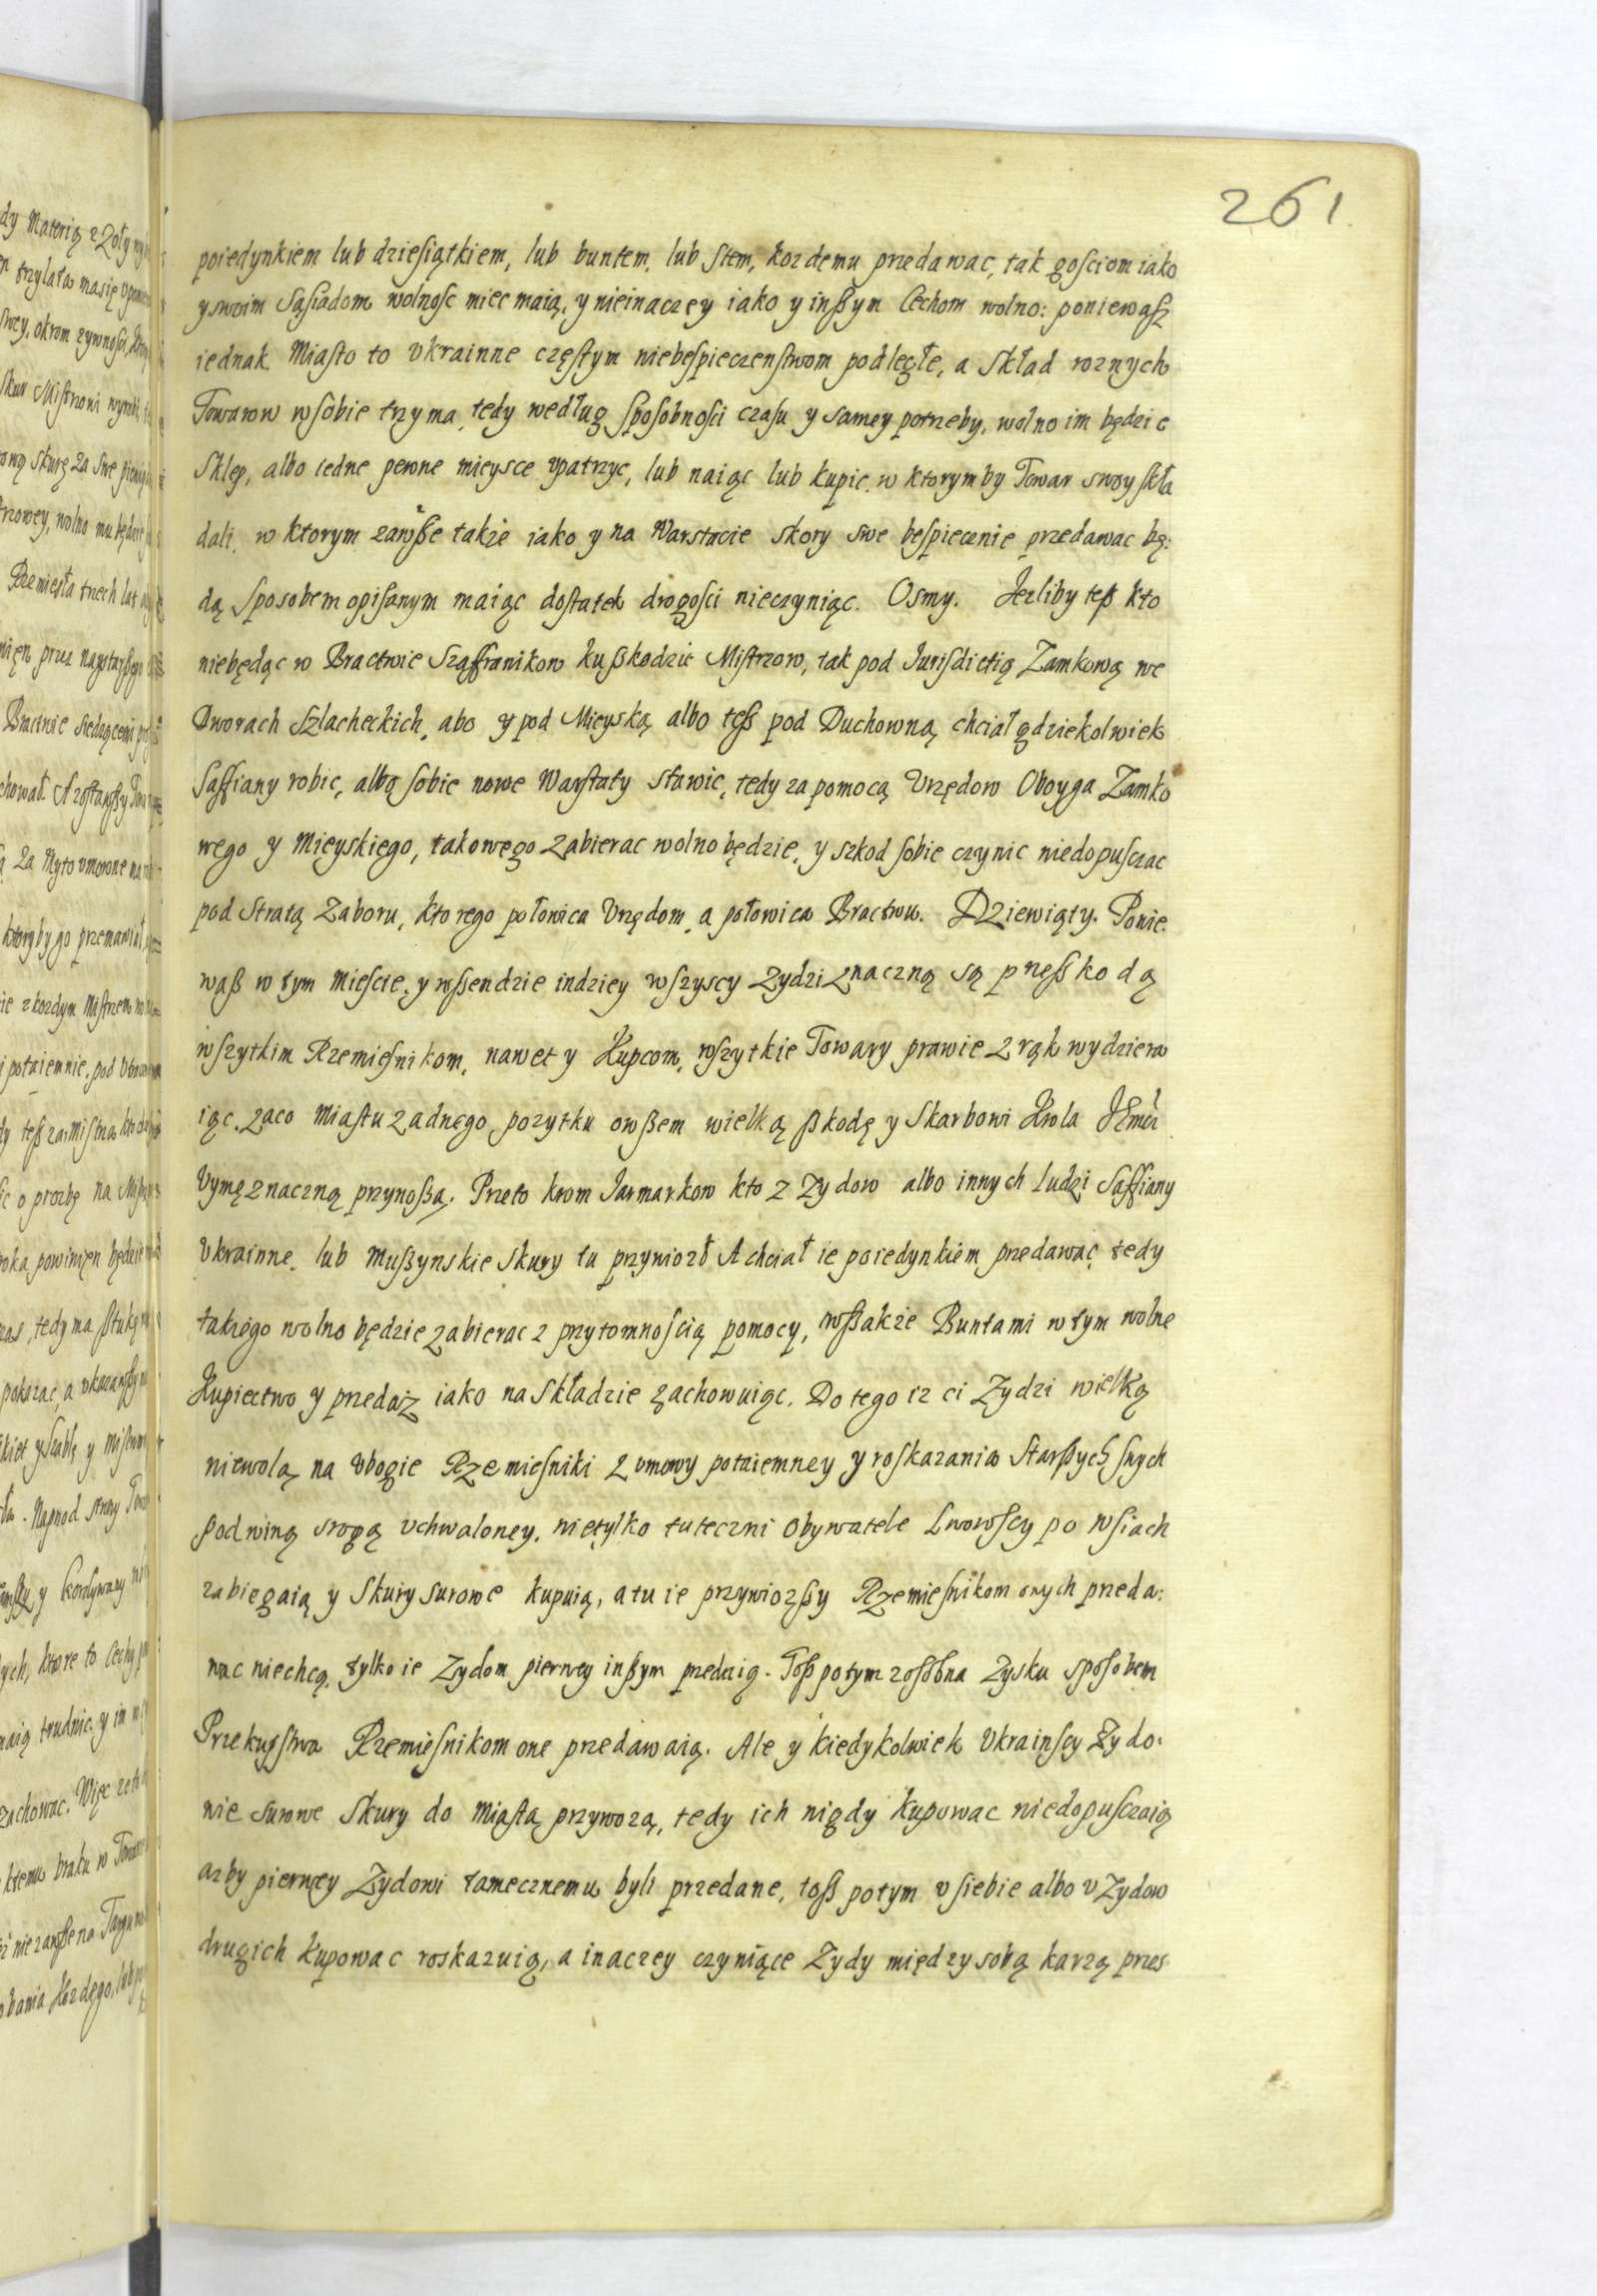 261.
poiedynkiem lub dziesiątkiem, lub buntem, lub stem, kozdemu przedawac, tak gosciom iako
y swoim Sąsiadom wolnosc miec maią, y nieinaczey iako y inßym Cechom wolno: poniewasz
iednak Miasto to Vkrainne częstym niebespieczenstwom podległe, a Skład roznych
Towarow w sobie trzyma, tedy według sposobnosci czasu y samey potrzeby, wolno im będzie
Sklep, albo iedne pewne mieysce vpatrzyc, lub naiąc lub kupic, w ktorymby Towar swoy skła
dali, w ktorym zawße także iako y na Warstacie skory swe bespiecznie przedawac bę:
dą sposobem opisanym maiąc dostatek drogosci nieczyniąc. Osmy. Jezliby teß kto
niebędąc w Bractwie Szaffranikow ku ßkodzie Mistrzow, tak pod Jurisdictią Zamkową we
Dworach Szlacheckich, abo y pod Mieyską albo teß pod Duchowną chciał gdziekolwiek
Saffiany robic, albo sobie nowe Warstaty stawic, tedy za pomocą Vrzędow Oboyga Zamko
wego y Mieyskiego, takowego zabierac wolno będzie, y szkod sobie czynic niedopusczac
pod stratą Zaboru, ktorego połowica Vrzędom, a połowica Bractwu. Dziewiąty. Ponie:
waß w tym Miescie, y wßendzie indziey wszyscy Zydzi znaczną są preßkodą
wszytkim Rzemiesnikom, nawet y Kupcom, wszytkie Towary prawie z rąk wydziera
iąc, zaco Miastu zadnego pozytku owßem wielką ßkodę y Skarbowi Krola JEmci
Vymę znaczną przynoßą. Przeto krom Jarmarkow kto z Zydow albo innych ludzi Saffiany
Vkrainne, lub Mußynskie skury tu przywiozł A chciał ie poiedynkiem przedawac, tedy
takiego wolno będzie zabierac z przytomnoscią pomocy, wßakze Buntami w tym wolne
Kupiectwo y przedaż iako na Składzie zachowuiąc. Do tego iz ci Zydzi wielką
niewolą na Vbogie Rzemiesniki z vmowy potaiemney y roskazania Starßych swych
pod winą srogą vchwaloney, nietylko tuteczni Obywatele Lwowscy po wsiach
zabiegaią y Skury surowe kupuią, a tu ie przywiozßy Rzemiesnikom onych przeda:
wac niechcą, tylko ie Zydom pierwey inßym przedaią. Toß potym zosobna Zysku sposobem
Przekupstwa Rzemiesnikom one przedawaią. Ale y kiedykolwiek Vkrainscy Zydo:
wie surowe skury do Miasta przywozą, tedy ich nigdy kupowac niedopusczaią
azby pierwey Zydowi tamecznemu byli przedane, toß potym v siebie albo v Zydow
drugich kupowac roskazuią, a inaczey czyniące Zydy między sobą karzą przes